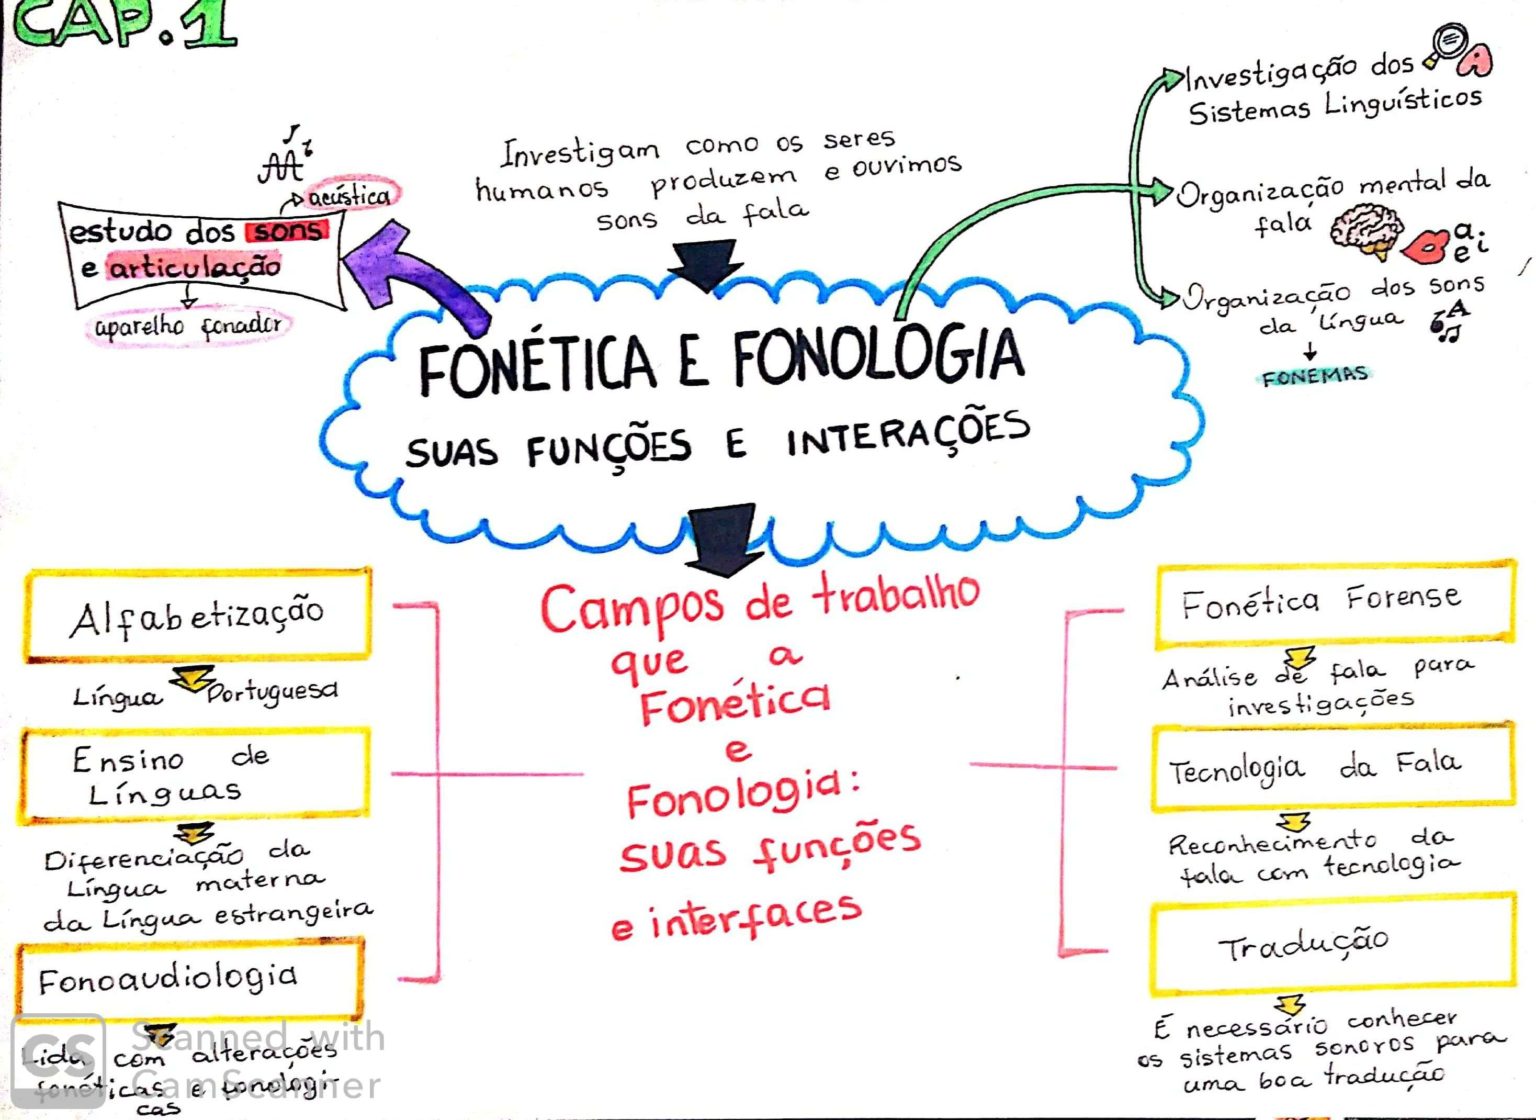 CAP.1
acústica
estudo dos sons
e articulação
aparelho fonador
Investigam como os seres
humanos produzem e ouvimos
sons da fala
Investigação dos
Sistemas Linguísticos
Organização mental da
fala
a
e i
Organização dos sons
da língua
FONEMAS
FONÉTICA E FONOLOGIA
SUAS FUNÇÕES E INTERAÇÕES
Campos de trabalho
que a
Fonética
e
Fonologia:
suas funções
e interfaces
Alfabetização
Língua Portuguesa
Ensino de
Línguas
Diferenciação da
Língua materna
da Língua estrangeira
Fonoaudiologia
Lida com alterações
fonéticas e fonológi-
cas
Fonética Forense
Análise de fala para
investigações
Tecnologia da Fala
Reconhecimento da
fala com tecnologia
Tradução
É necessário conhecer
os sistemas sonoros para
uma boa tradução
CS Scanned with
CamScanner